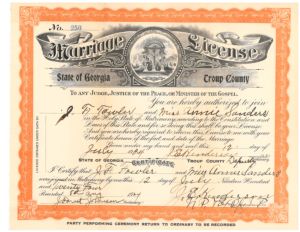 No. 250
Marriage License
State of Georgia Troup County
TO ANY JUDGE, JUSTICE OF THE PEACE, OR MINISTER OF THE GOSPEL.
You are hereby authorized to join
J. D. Fowler and Miss Annie Sanders
in the Holy State of Matrimony, according to the Constitution and
Laws of this State, and for so doing this shall be your License.
And you are hereby required to return this License to me with your
Certificate hereon of the fact and date of the Marriage.
Given under my hand and seal this 12 day of
July
STATE OF GEORGIA, CERTIFICATE TROUP COUNTY
I Certify that J. D. Fowler and Miss Annie Sanders
were joined in Matrimony by me this 12 day of July Nineteen Hundred
and twenty four
PARTY PERFORMING CEREMONY RETURN TO ORDINARY TO BE RECORDED